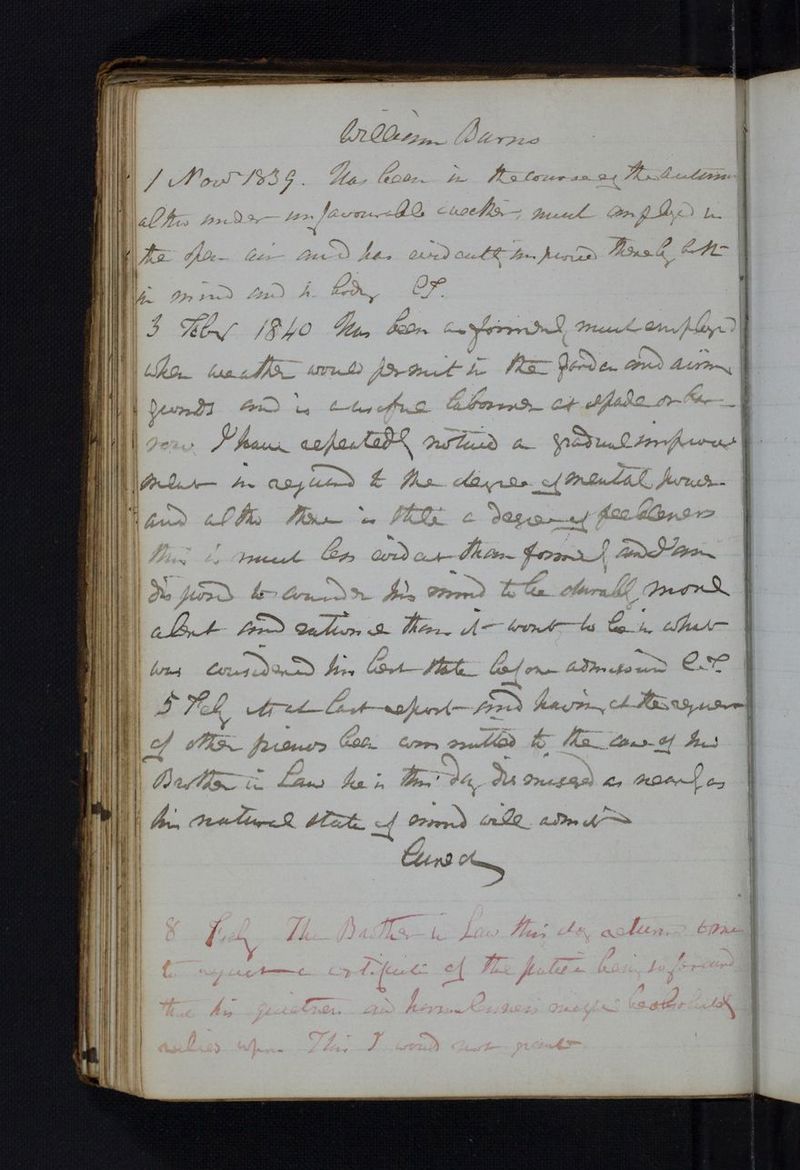 William Burns
1 Nov 1839. Has been in the course of the Autumn
altho under unfavourable weather, much employed in
the open air and has evidently improved thereby both
in mind and in body
3 Feby 1840 Has been as formerly much employed
when weather would permit in the garden and airing
grounds and is a useful labourer at spade or bar-
row. I have repeatedly noticed a gradual improve
ment in regard to the degree of mental power
and altho there is still a degree of feebleness
this is much less evident than formerly and I am
disposed to consider his mind to be durably more
alert and rational than it wont to be in what
was considered his best state before admission
5 Feby As at last report and having at the request
of other friends been committed to the care of his
Brother in Law he is this day dismissed as nearly as
his natural state of mind will admit
Cured
8 Feby The Brother in Law this day returns to me
to request a certificate of the patient being so
that his quietness and harmlessness might be absolutely
relied upon This I would not grant